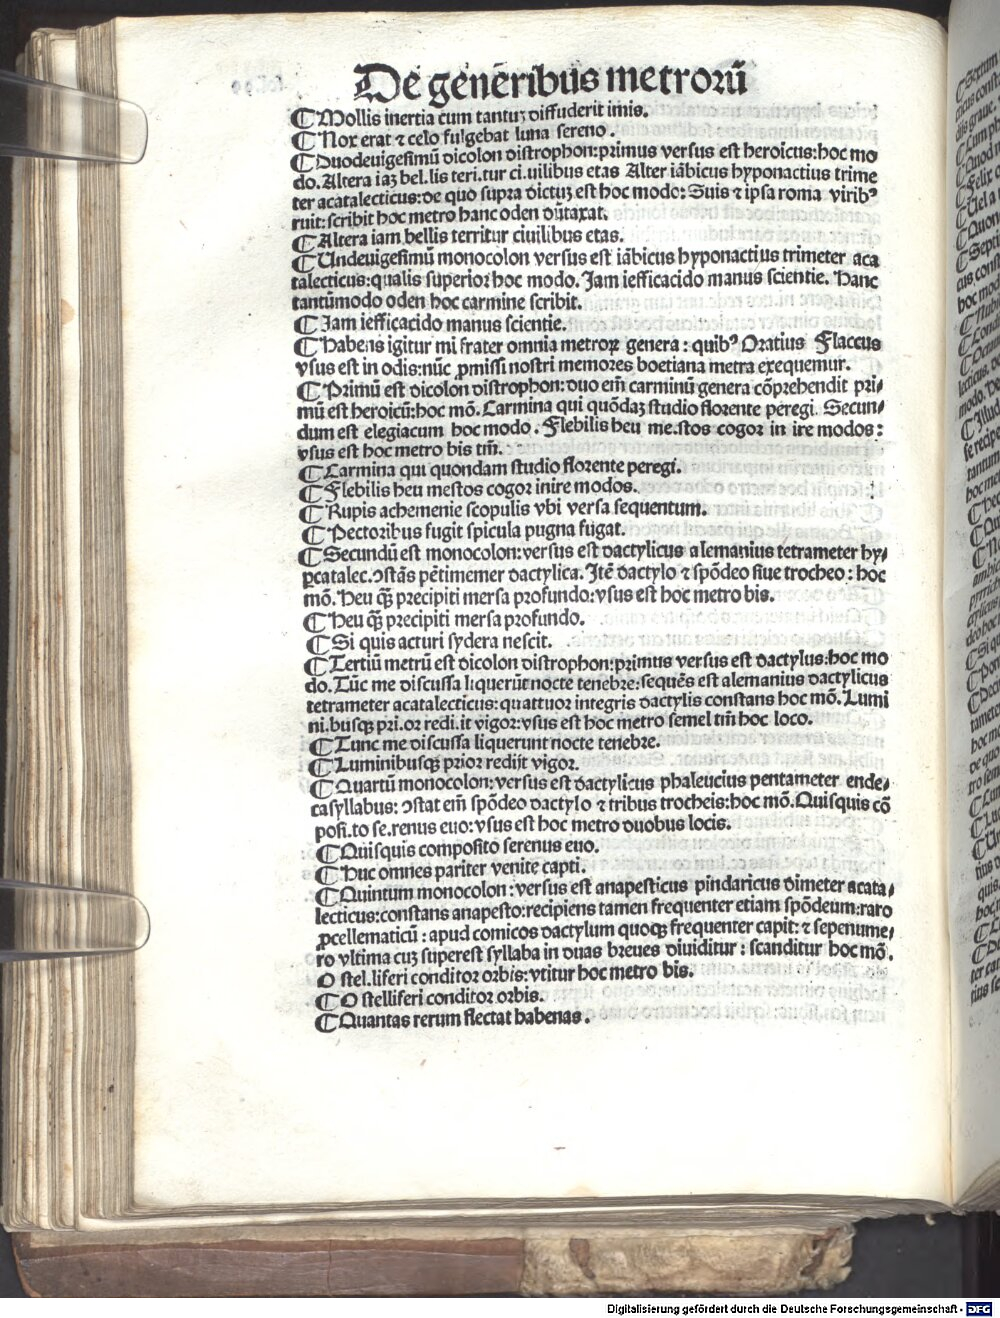 De generibus metrorū
¶ Mollis inertia cum tantuʒ diffuderit imis.
¶ Nox erat ⁊ celo fulgebat luna sereno.
¶ Duodeuigesimū dicolon distrophon:primus versus est heroicus:hoc mo
do. Altera iaʒ bel.lis teri.tur ci.uilibus etas Alter iābicus hyponactius trime
ter acatalecticus:de quo supra dictuʒ est hoc modo: Suis ⁊ ipsa roma viribꝰ
ruit:scribit hoc metro hanc oden dūtaxat.
¶ Altera iam bellis territur ciuilibus etas.
¶ Undeuigesimū monocolon versus est iābicus hyponactius trimeter aca
talecticus:qualis superior hoc modo. Jam iefficacido manus scientie. Hanc
tantūmodo oden hoc carmine scribit.
¶ Jam iefficacido manus scientie.
¶ Habens igitur mi frater omnia metroꝝ genera : quibꝰ Oratius Flaccus
vsus est in odis:nūc ꝓmissi nostri memores boetiana metra exequemur.
¶ Primū est dicolon distrophon: duo em̄ carminū genera cōprehendit pri⸗
mū est heroicū:hoc mō. Carmina qui quōdaʒ studio florente peregi. Secun⸗
dum est elegiacum hoc modo. Flebilis heu me.stos cogor in ire modos:
vsus est hoc metro bis tm̄.
¶ Carmina qui quondam studio florente peregi.
¶ Flebilis heu mestos cogor inire modos.
¶ Rupis achemenie scopulis vbi versa sequentum.
¶ Pectoribus fugit spicula pugna fugat.
¶ Secundū est monocolon:versus est dactylicus alemanius tetrameter hy⸗
ꝑcatalec.ↄstās pētimemer dactylica. Itē dactylo ⁊ spōdeo siue trocheo : hoc
mō. Heu qꝫ̄ precipiti mersa profundo:vsus est hoc metro bis.
¶ Heu qꝫ̄ precipiti mersa profundo.
¶ Si quis acturi sydera nescit.
¶ Tertiū metrū est dicolon distrophon:primus versus est dactylus:hoc mo
do. Tūc me discussa liquerūt nocte tenebre:sequēs est alemanius dactylicus
tetrameter acatalecticus:quattuor integris dactylis constans hoc mō. Lumi
ni.busqꝫ pri.or redi.it vigor:vsus est hoc metro semel tm̄ hoc loco.
¶ Tunc me discussa liquerunt nocte tenebre.
¶ Luminibusqꝫ prior redijt vigor.
¶ Quartū monocolon:versus est dactylicus phaleucius pentameter ende⸗
casyllabus: ↄstat em̄ spōdeo dactylo ⁊ tribus trocheis:hoc mō. Quisquis cō
posi.to se.renus euo:vsus est hoc metro duobus locis.
¶ Quisquis composito serenus euo.
¶ Huc omnes pariter venite capti.
¶ Quintum monocolon:versus est anapesticus pindaricus dimeter acata⸗
lecticus:constans anapesto:recipiens tamen frequenter etiam spōdeum:raro
ꝓcellematicū : apud comicos dactylum quoqꝫ frequenter capit: ⁊ sepenume⸗
ro vltima cuʒ superest syllaba in duas breues diuiditur : scanditur hoc mō.
O stel.liferi conditor orbis:vtitur hoc metro bis.
¶ O stelliferi conditor orbis.
¶ Quantas rerum flectat habenas.
Digitalisierung gefördert durch die Deutsche Forschungsgemeinschaft - DFG